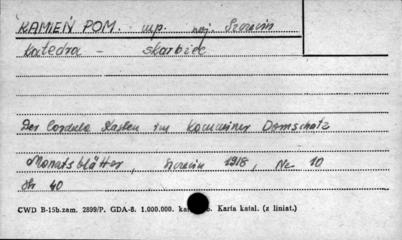 KAMIEŃ POM. wp. woj. Szczecin
Katedra - skarbiec
Der Cordula Kasten im Kamminer Domschatz
Monatsblätter, Szczecin 1918, Nr 10
Str 40
CWD B-15b.zam. 2899/P. GDA-8. 1.000.000. Karta katal. (z liniat.)